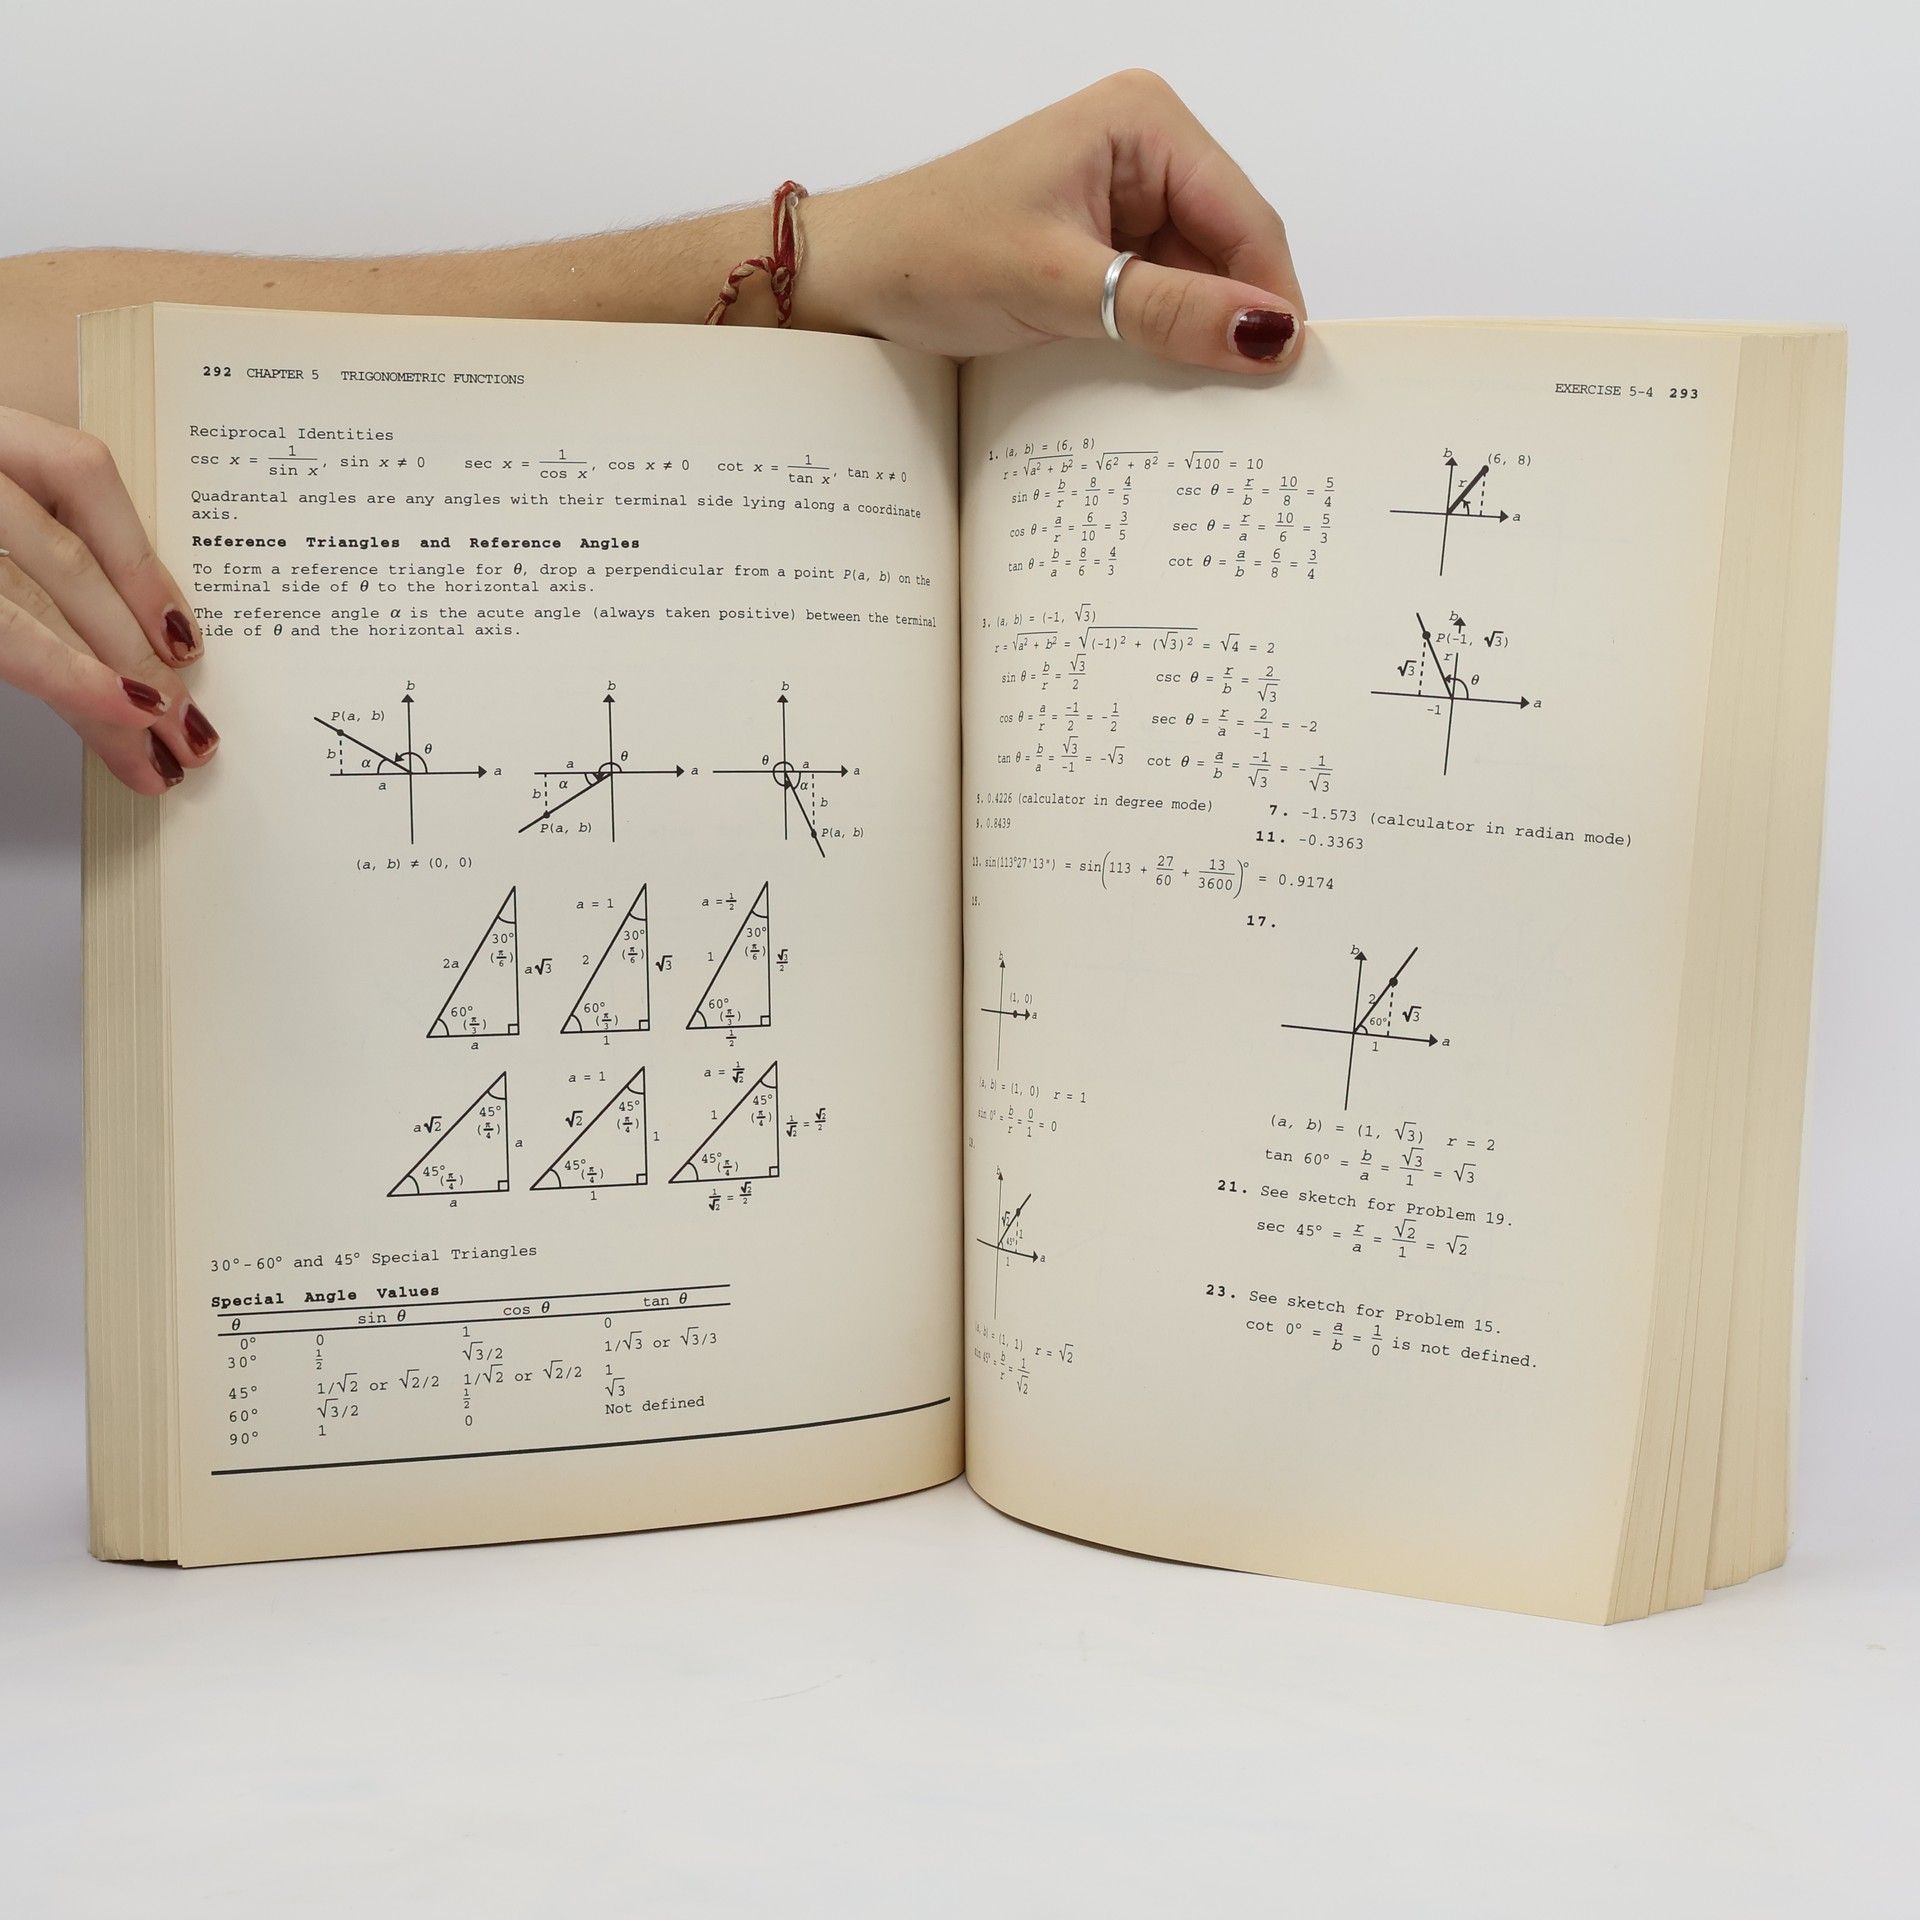 292 CHAPTER 5 TRIGONOMETRIC FUNCTIONS
Reciprocal Identities
csc x = 1/sin x, sin x ≠ 0 sec x = 1/cos x, cos x ≠ 0 cot x = 1/tan x, tan x ≠ 0
Quadrantal angles are any angles with their terminal side lying along a coordinate
axis.
Reference Triangles and Reference Angles
To form a reference triangle for θ, drop a perpendicular from a point P(a, b) on the
terminal side of θ to the horizontal axis.
The reference angle α is the acute angle (always taken positive) between the terminal
side of θ and the horizontal axis.
b b b
P(a, b)
b α θ a
a
a θ a
α
b
P(a, b)
θ a a
α
b
P(a, b)
(a, b) ≠ (0, 0)
a = 1 a = 1/2
30° 30° 30°
(π/6) (π/6) (π/6)
2a a√3 2 √3 1 √3/2
60° 60° 60°
(π/3) (π/3) (π/3)
a 1 1/2
a = 1 a = 1/√2
45° 45° 45°
(π/4) (π/4) (π/4)
a√2 a √2 1 1 1/√2 = √2/2
45° (π/4) 45° (π/4) 45° (π/4)
a 1 1/√2 = √2/2
30°-60° and 45° Special Triangles
Special Angle Values
θ sin θ cos θ tan θ
0° 0 1 0
30° 1/2 √3/2 1/√3 or √3/3
45° 1/√2 or √2/2 1/√2 or √2/2 1
60° √3/2 1/2 √3
90° 1 0 Not defined
EXERCISE 5-4 293
1. (a, b) = (6, 8)
r = √a² + b² = √6² + 8² = √100 = 10
sin θ = b/r = 8/10 = 4/5 csc θ = r/b = 10/8 = 5/4
cos θ = a/r = 6/10 = 3/5 sec θ = r/a = 10/6 = 5/3
tan θ = b/a = 8/6 = 4/3 cot θ = a/b = 6/8 = 3/4
b
(6, 8)
r
a
3. (a, b) = (-1, √3)
r = √a² + b² = √(-1)² + (√3)² = √4 = 2
sin θ = b/r = √3/2 csc θ = r/b = 2/√3
cos θ = a/r = -1/2 = -1/2 sec θ = r/a = 2/-1 = -2
tan θ = b/a = √3/-1 = -√3 cot θ = a/b = -1/√3 = -1/√3
b
P(-1, √3)
r
√3 θ
-1 a
5. 0.4226 (calculator in degree mode) 7. -1.573 (calculator in radian mode)
9. 0.8439 11. -0.3363
13. sin(113°27'13") = sin(113 + 27/60 + 13/3600)° = 0.9174
15. 17.
b
(1, 0)
a
(a, b) = (1, 0) r = 1
sin 0° = b/r = 0/1 = 0
b
2
60° √3
1 a
(a, b) = (1, √3) r = 2
tan 60° = b/a = √3/1 = √3
19.
b
√2
45° 1
1 a
(a, b) = (1, 1) r = √2
sin 45° = b/r = 1/√2
21. See sketch for Problem 19.
sec 45° = r/a = √2/1 = √2
23. See sketch for Problem 15.
cot 0° = a/b = 1/0 is not defined.